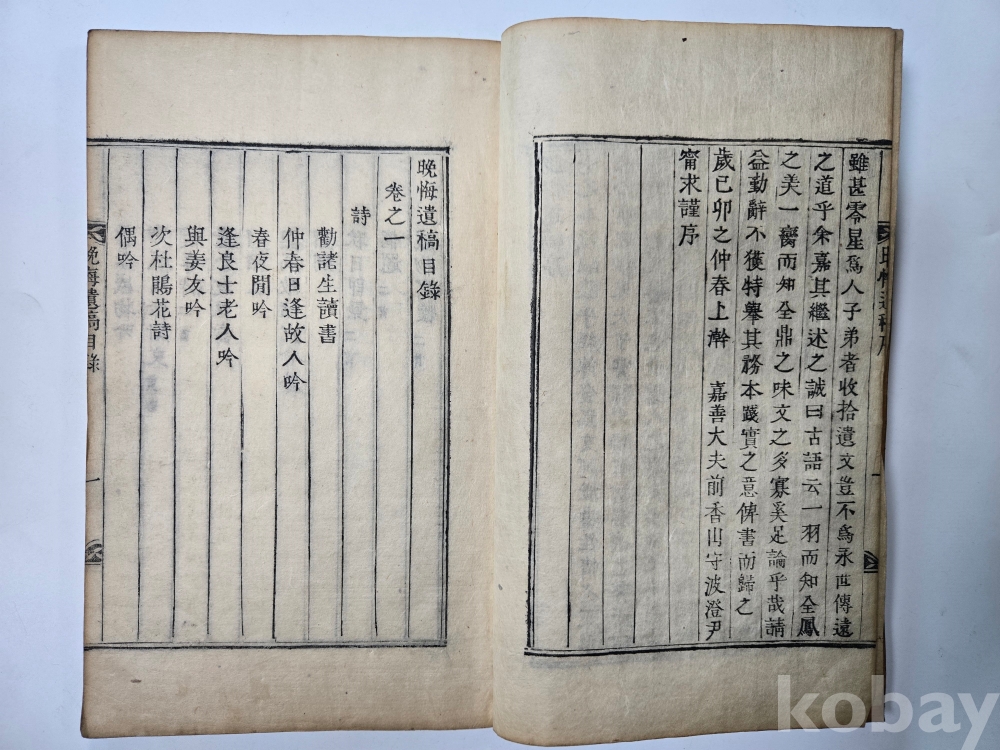 雖甚零星爲人子弟者收拾遺文豈不爲永世傳遠
之道乎余嘉其繼述之誠曰古語云一羽而知全鳳
之美一臠而知全鼎之味文之多寡奚足論乎哉請
益勤辭不獲特擧其務本踐實之意俾書而歸之
歲己卯之仲春上澣 嘉善大夫前香山守波澄尹
甯求謹序
一
晩悔遺稿目錄
卷之一
詩
勸諸生讀書
仲春日逢故人吟
春夜閒吟
逢良士老人吟
與姜友吟
次杜鵑花詩
偶吟
晩悔遺稿目錄
一
kobay